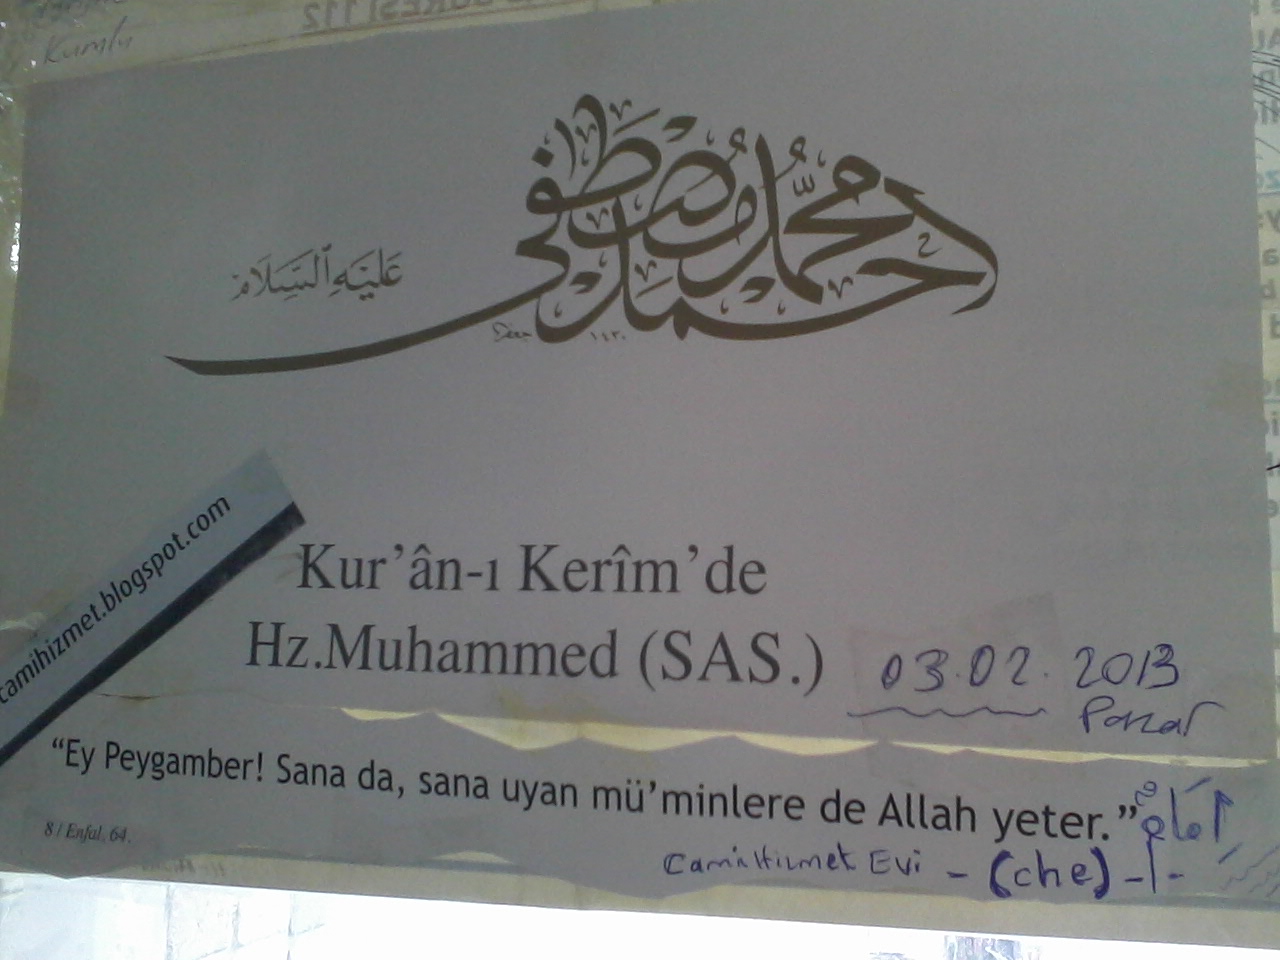 Kumlu
SURESİ 112
احمد محمد مصطفى
عَلَيْهِ السَّلَامُ
١٤٣٠
camihizmet.blogspot.com
Kur'ân-ı Kerîm'de
Hz.Muhammed (SAS.)
03.02.2013
Pazar
“Ey Peygamber! Sana da, sana uyan mü'minlere de Allah yeter.”
8 / Enfal, 64.
Cami Hizmet Evi - (che) -